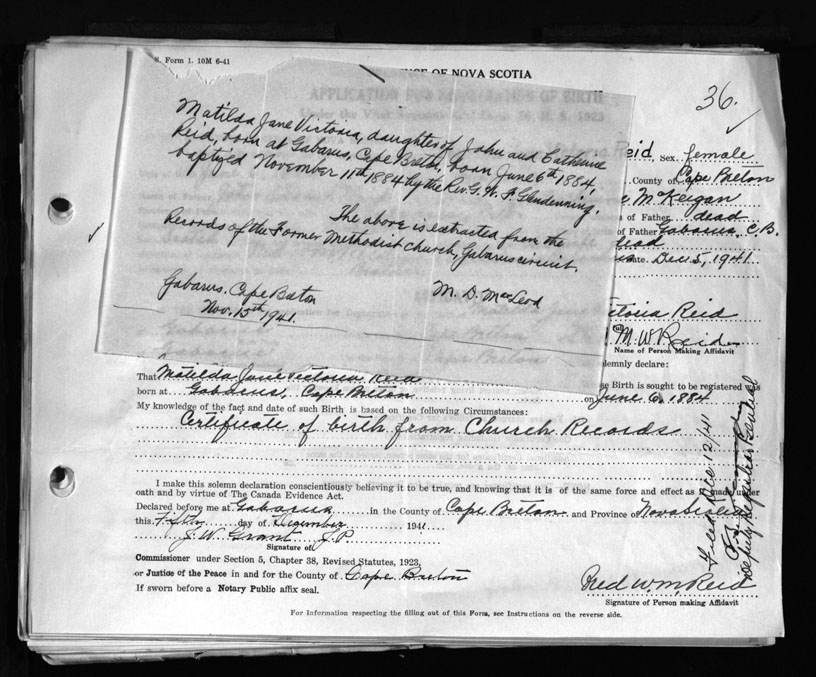 S. Form 1. 10M 6-41
OF NOVA SCOTIA
APPLICATION FOR REGISTRATION OF BIRTH
36.
Matilda Jane Victoria, daughter of John and Catherine
Reid, born at Gabarus, Cape Breton, born June 6th 1884,
baptized November 11th 1884 by the Rev. G. W. F. Glendenning.
The above is extracted from the
Records of the Former Methodist church, Gabarus circuit.
Gabarus, Cape Breton
Nov. 15th 1941.
M. D. MacLeod
Reid, Sex female
County of Cape Breton
McKeigan
s of Father dead
of Father Gabarus, C.B.
dead
ate. Dec. 5, 1941
ctoria Reid
M. W. Reid
Name of Person Making Affidavit
olemnly declare:
That Matilda Jane Victoria Reid
se Birth is sought to be registered was
born at Gabarus, Cape Breton on June 6, 1884
My knowledge of the fact and date of such Birth is based on the following Circumstances:
Certificate of birth from Church Records
I make this solemn declaration conscientiously believing it to be true, and knowing that it is of the same force and effect as if made under
oath and by virtue of The Canada Evidence Act.
Declared before me at Gabarus in the County of Cape Breton and Province of Nova Scotia
this Fifth day of December 1941
J. W. Grant J P
Signature of
Commissioner under Section 5, Chapter 38, Revised Statutes, 1923,
or Justice of the Peace in and for the County of Cape Breton
If sworn before a Notary Public affix seal.
Fred W. M. Reid
Signature of Person making Affidavit
Filed Dec 12/41
Deputy Registrar General
For Information respecting the filling out of this Form, see Instructions on the reverse side.